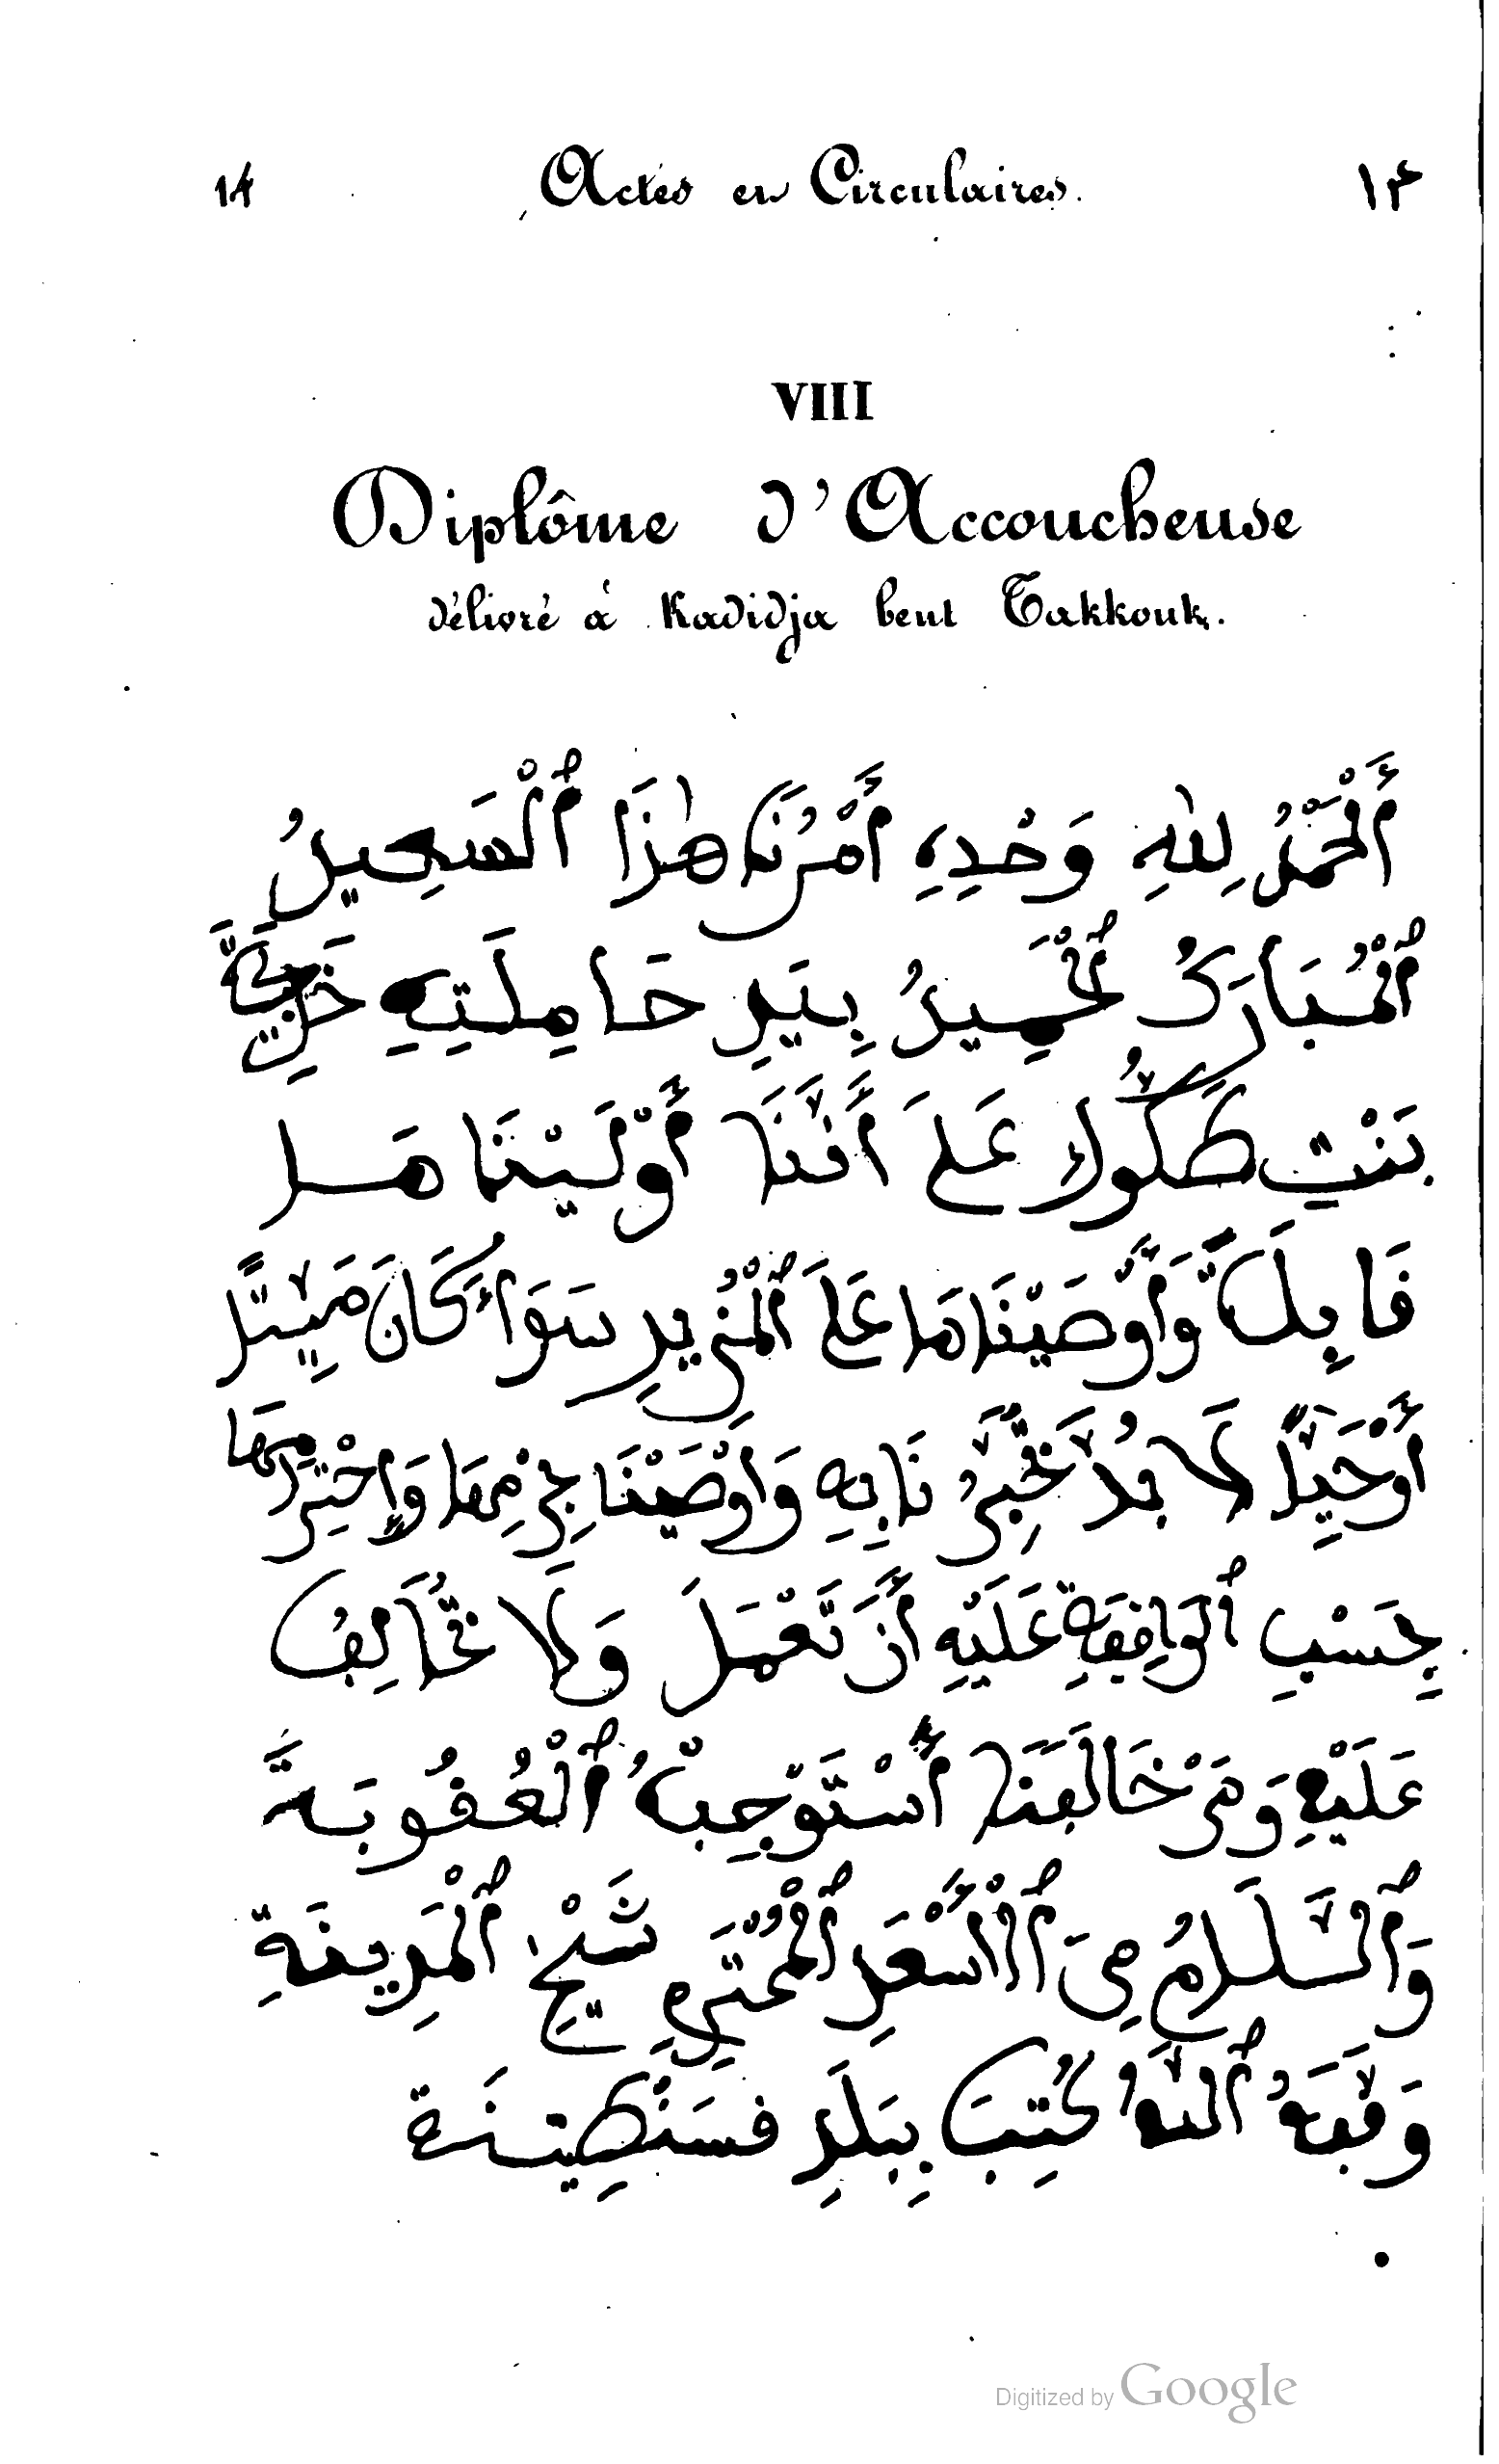 14 Actes en Circulaires. ١٤
VIII
Diplôme d'Accoucheuse
délivré à Kadidja bent Takkouk.
أَلْحَمْدُ لِلهِ وَحْدِهِ أَمْرُنَا هٰذَا ٱلْسَعِيدُ
ٱلْمُبَارَكُ ٱلْحَمِيدُ بِيَدِ حَامِلَتِهِ خَدِيجَةَ
بَنْتِ طَكُّوك عَلَى أَنَّنَا أَوْلَيْنَاهَا
فَابِلَةً وَأَوْصَيْنَاهَا عَلَى ٱلْمُزِيدِ سَوَاءَ كَانَ مَيِّتًا
أَوْحَيًّا لَا بُدَّ تُخْبِرُ نَابِهِ وَأَوْصَيْنَا بِحُرْمِهَا وَإِحْتِرَمِهَا
بِحَسْبِ ٱلْوَافِفِهِ عَلَيْهِ أَنْ تَعْمَلَ وَلَا تُخَالِفُ
عَلَيْهِ وَمَنْ خَالَفَنَا أَسْتَوْجِبْهُ ٱلْعُفُوبَةَ
وَٱلسَّلَامُ مِنَ ٱلْأَسْعَدِ ٱلْمُحْتَرَمِ شَيْخِ ٱلْمَدِينَةِ
وَفَّفَهُ ٱللَّهُ كُتِبَ بِبَلَدِ فسَنْطِينَة
Digitized by Google